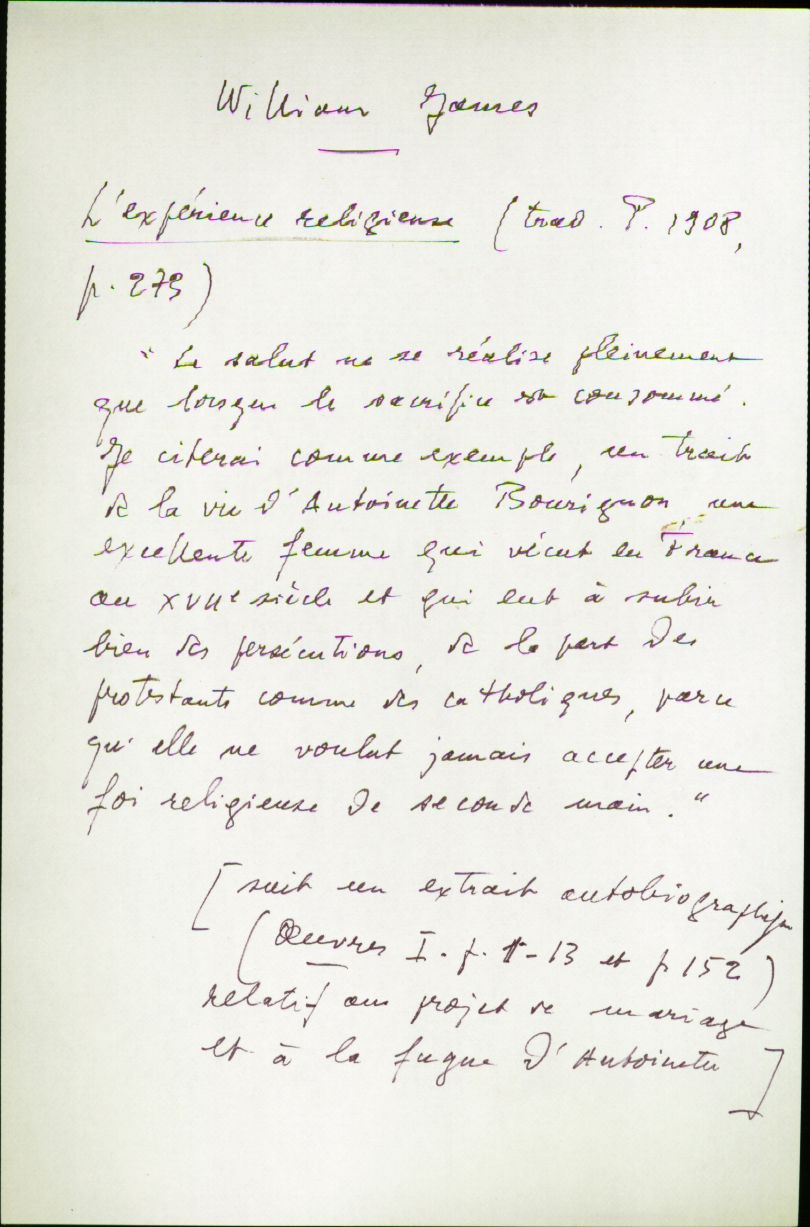 William James
L'expérience religieuse (trad. P. 1908,
p. 279)
" Le salut ne se réalise pleinement
que lorsque le sacrifice est consommé.
Je citerai comme exemple, un trait
de la vie d'Antoinette Bourignon, une
excellente femme qui vécut en France
au XVIIe siècle et qui eut à subir
bien des persécutions, de la part des
protestants comme des catholiques, parce
qu'elle ne voulut jamais accepter une
foi religieuse de seconde main."
[ suit un extrait autobiographique
(Œuvres I. p. -13 et p 152)
relatif au projet de mariage
et à la fugue d'Antoinette ]